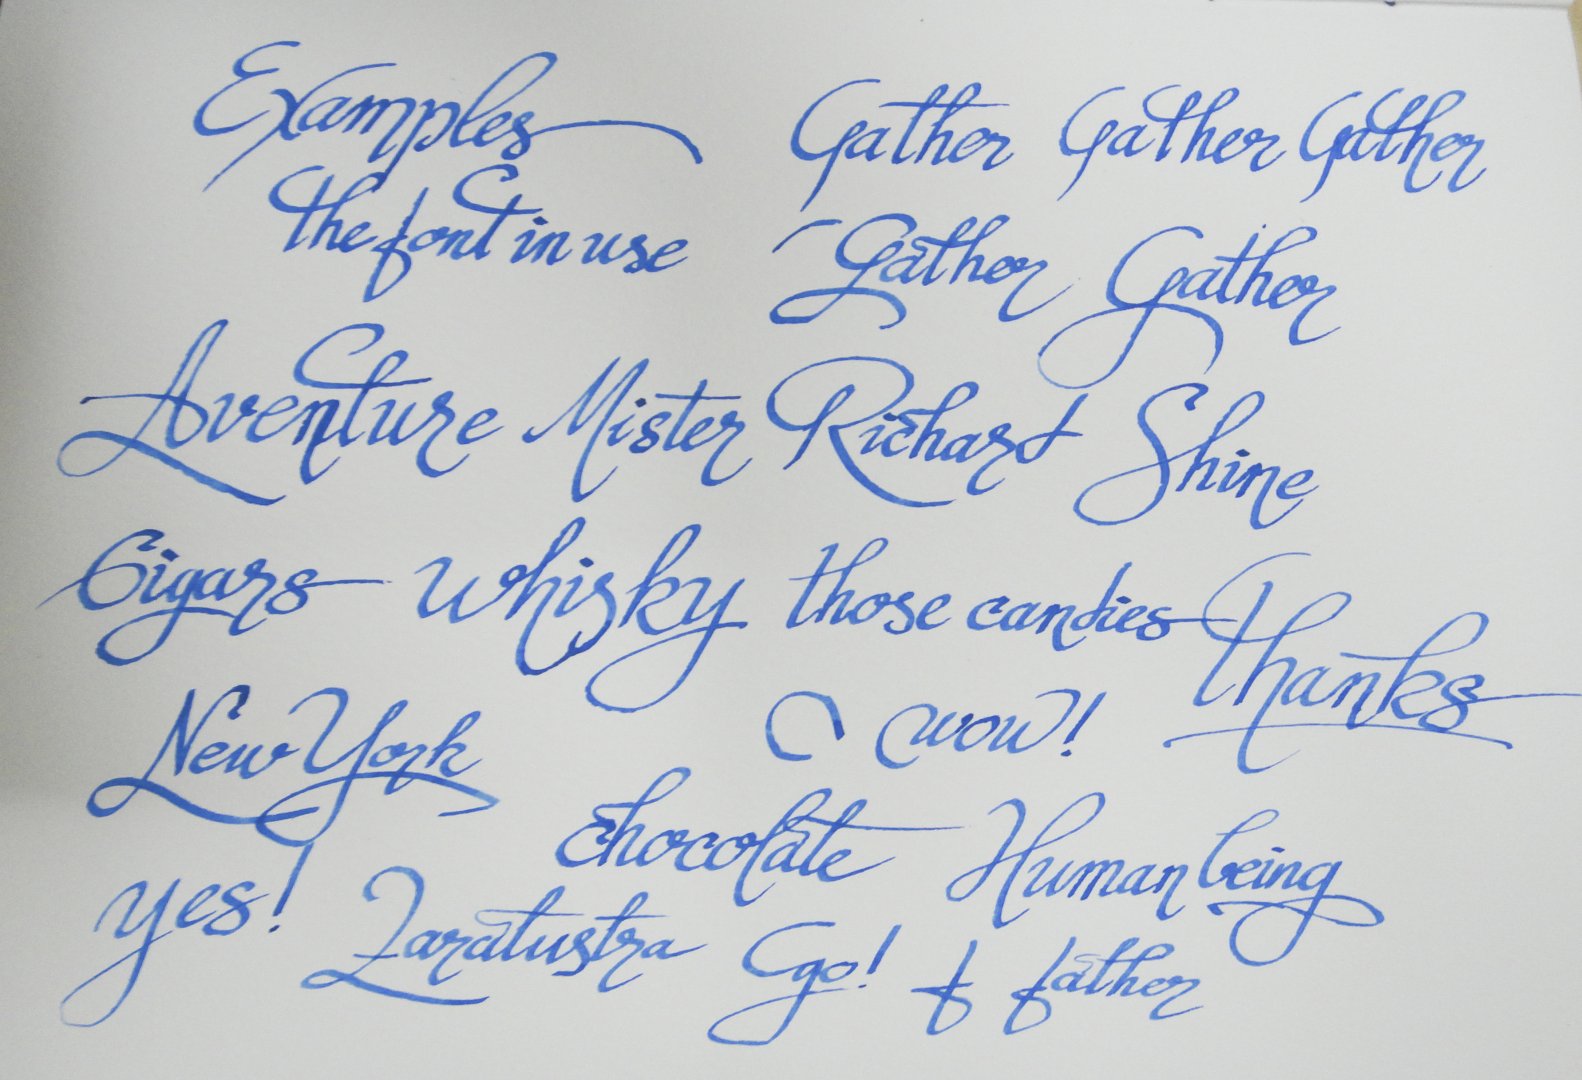 Examples
the font in use
Gather Gather Gather
Gather Gather
Aventure Mister Richard Shine
Cigars Whisky those candies Thanks
New York wow!
chocolate Human being
yes! Zaratustra Ggo! f father